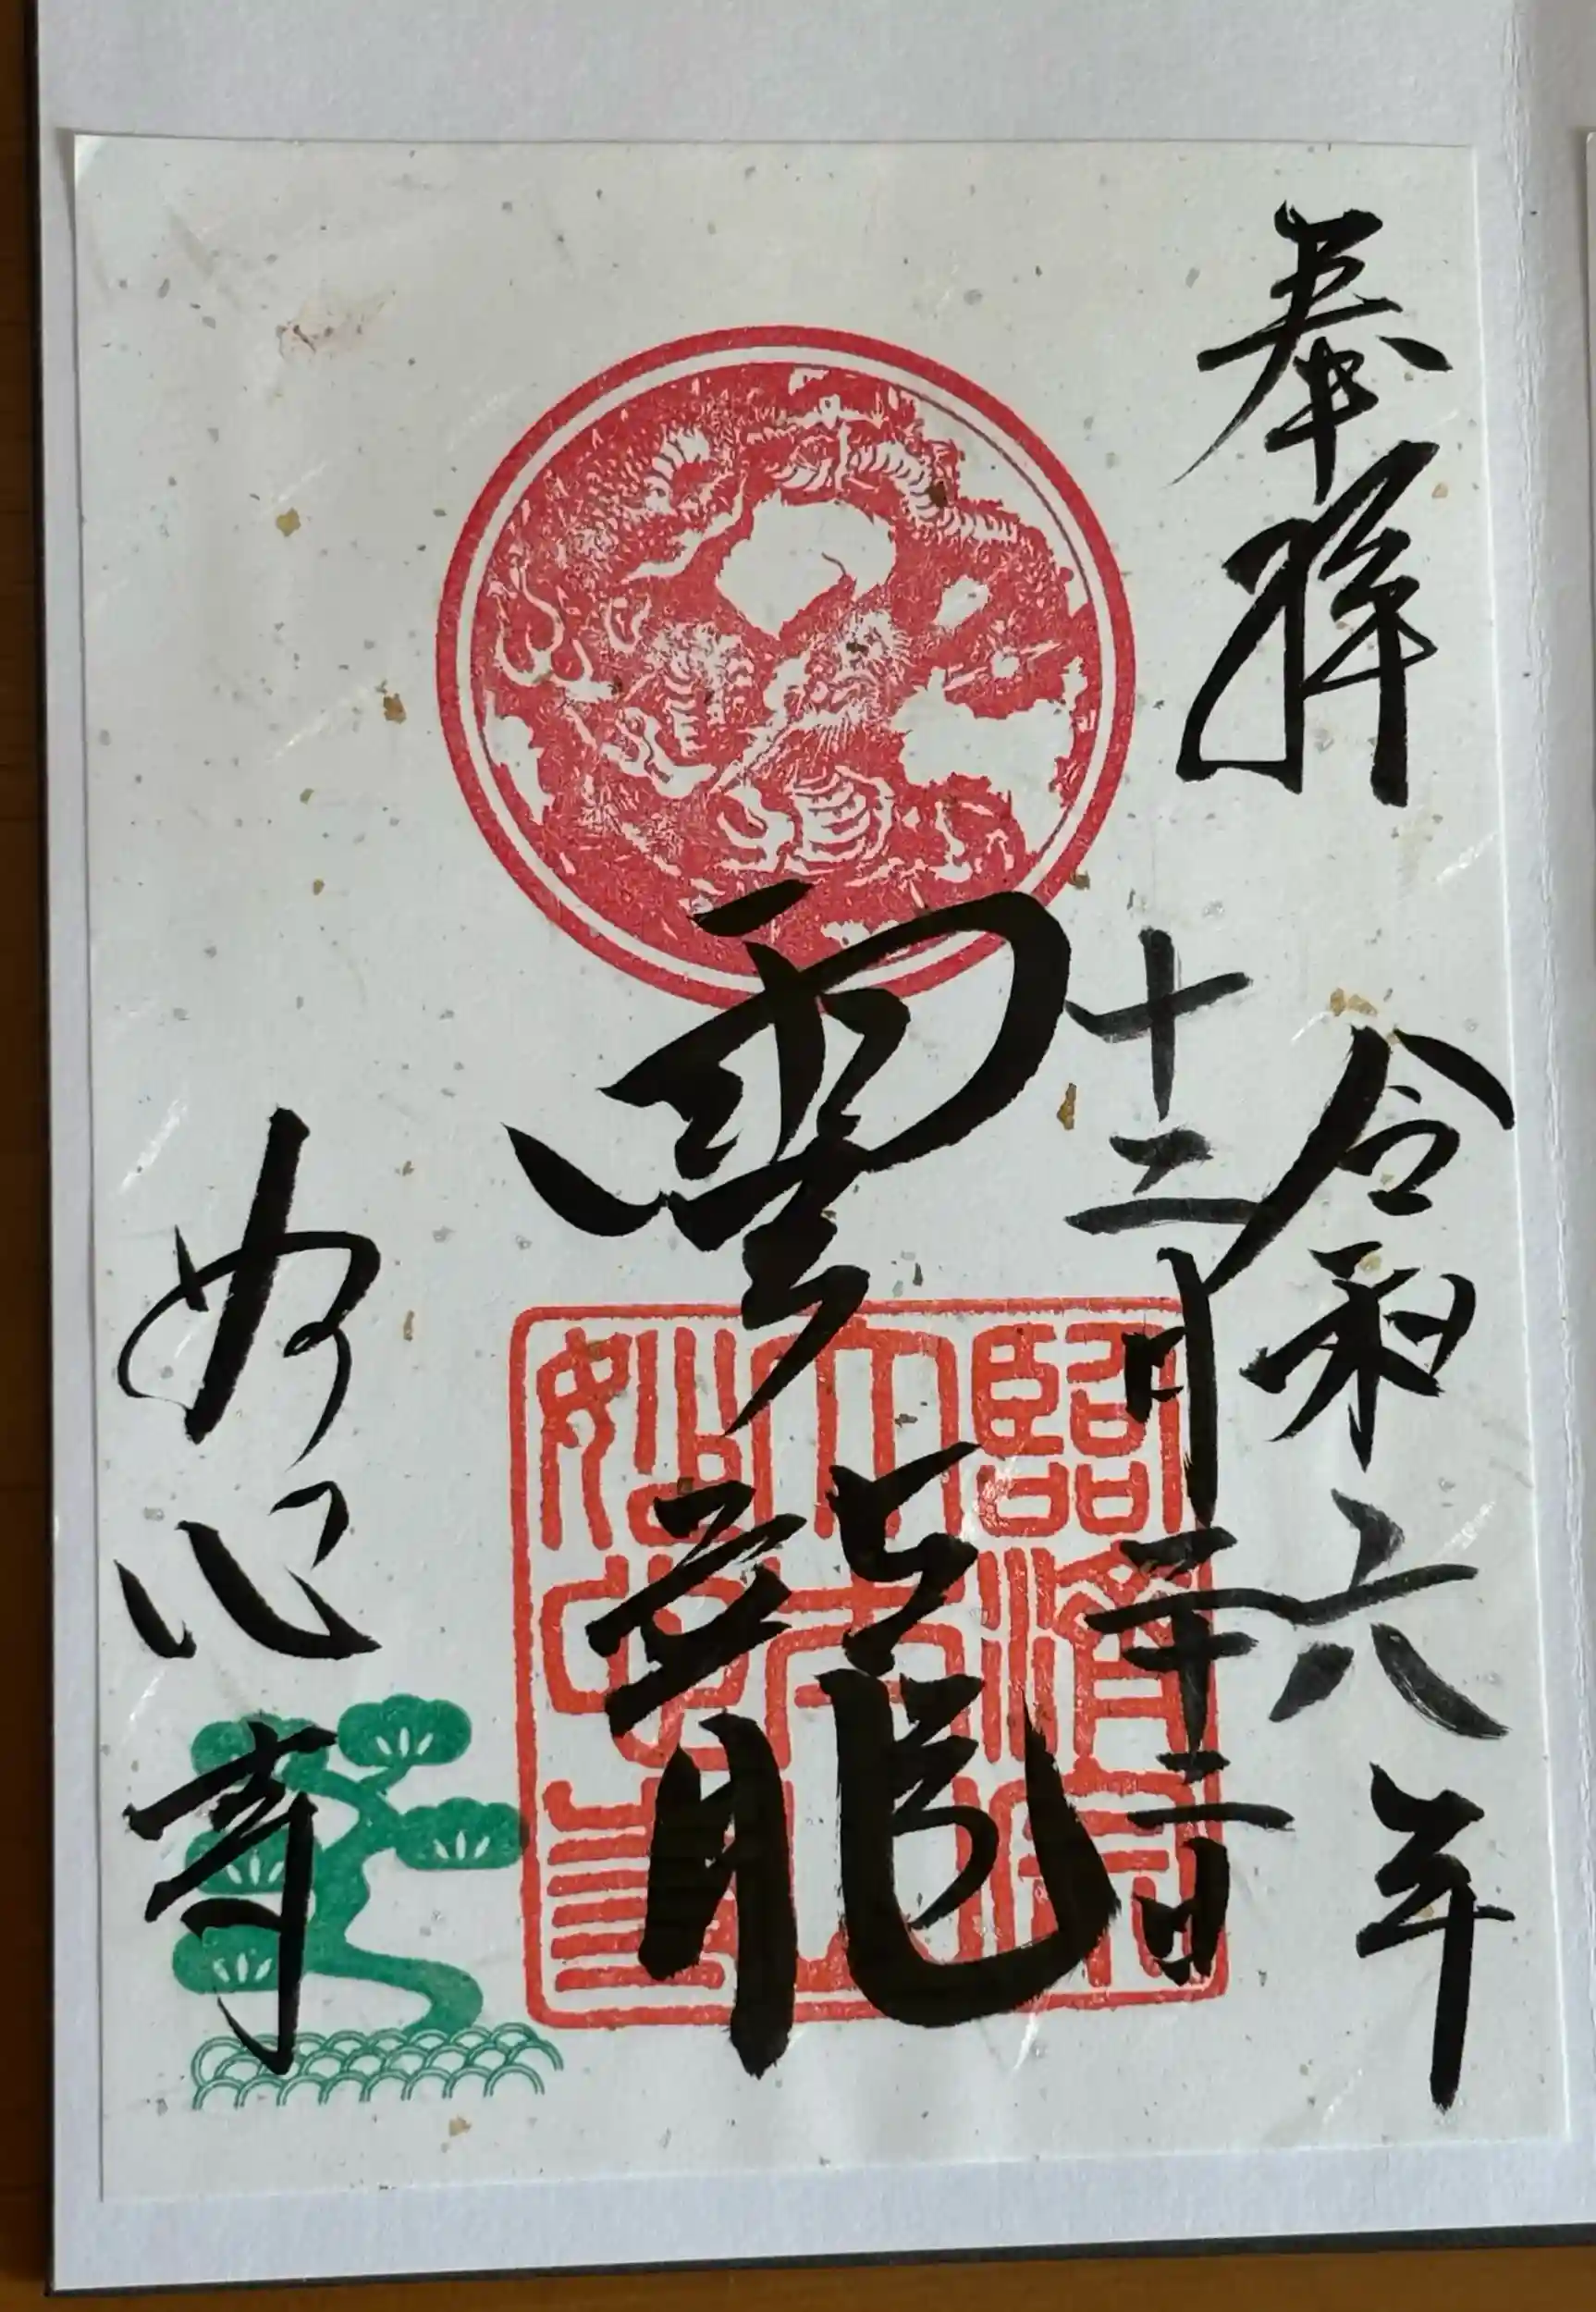 奉拝
令和六年
十二月二十二日
雲龍
妙心寺
臨濟宗
大本山
妙心寺